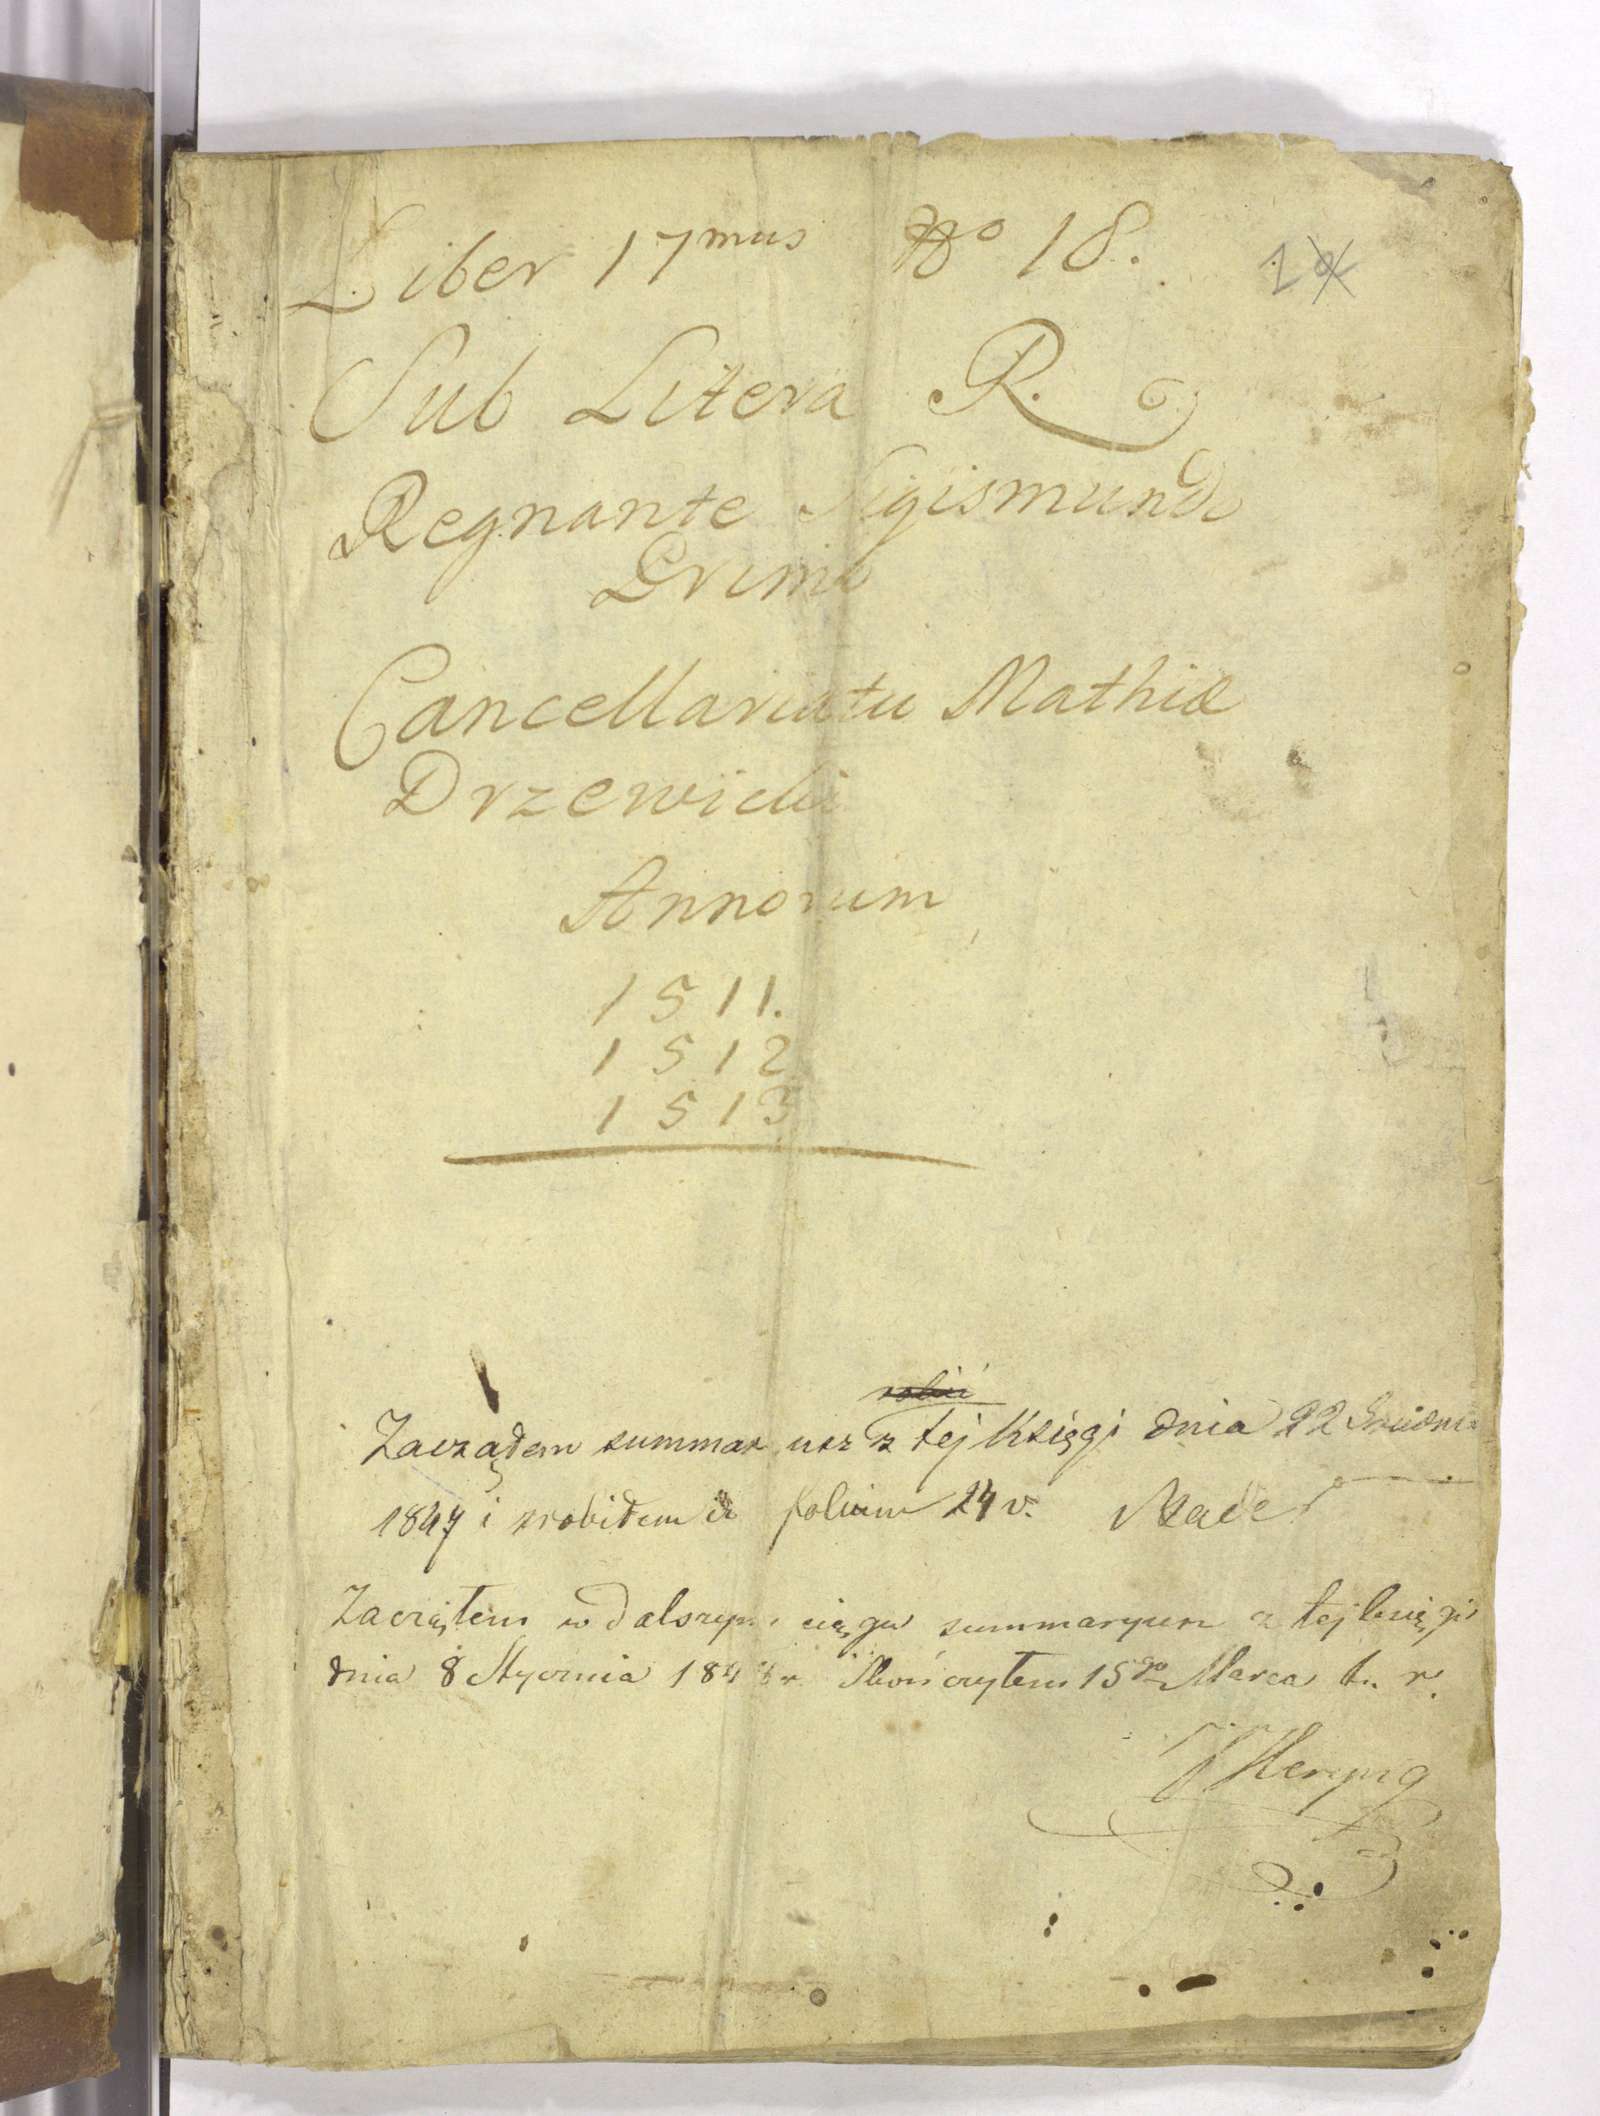 Liber 17mus No 18.
Sub Litera R.
Regnante Sigismundo
Primo
Cancellariatu Mathiæ
Drzewicki
Annorum
1511.
1512
1513
robić
Zacząłem summar z tej Księgi dnia 22 Grudnia
1847 i zrobiłem folium 24 v.
Zacząłem w dalszym ciągu summaryusz z tej księgi
dnia 8 Stycznia 1848 r. Skończyłem 15go Marca t. r.